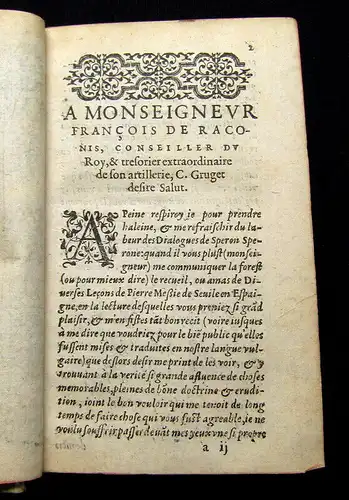 2
A MONSEIGNEVR
FRANÇOIS DE RACO-
NIS, CONSEILLER DV
Roy, & tresorier extraordinaire
de son artillerie, C. Gruget
desire Salut.
A Peine respiroy ie pour prendre
haleine, & me refraischir du la-
beur des Dialogues de Speron Spe-
rone: quand il vous plust (monsei-
gneur) me communiquer la forest
(ou pour mieux dire) le recueil, ou amas de Di-
uerses Leçons de Pierre Messie de Seuile en Espai-
gne, en la lecture desquelles vous preniez si grãd
plaisir, & m'en fistes tãt bon recit (voire iusques
à me dire que voudriez pour le biẽ public qu'elles
fussent mises & traduites en nostre langue vul-
gaire) que deslors desir me print de les voir, & y
trouuant à la verité si grande afluence de choses
memorables, pleines de bõne doctrine & erudi-
tion, ioint le bon vouloir qui me tenoit de long
temps de faire chose qui vous fust agreable, ie ne
voulu souffrir passer deuãt mes yeux vne si propre
à ij